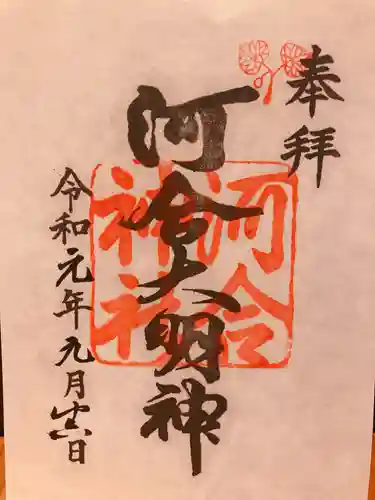 奉拝
河合大明神
河合
神社
令和元年九月日